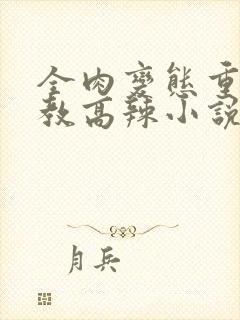 全肉變態重
教高辣小說
月兵